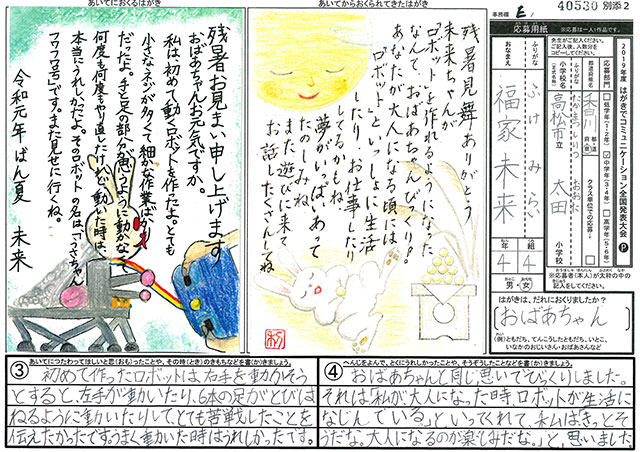 あいてにおくるはがき
残暑お見まい申し上げます
おばあちゃんお元気ですか。
私は初めて動くロボットを作たよ。とても
小さなネジが多くて細かな作業ばかり
だったよ。手と足の部分が思うように動かなくて
何度も何度もやり直したけれど、動いた時は、
本当にうれしかたよ。そのロボットの名は、「うさちゃん
フワフワ号」です。また見せに行くね。
令和元年 ばん夏 未来
あいてからおくられてきたはがき
残暑見舞ありがとう
未来ちゃんが
「ロボット」を作れるようになった
なんて、おばあちゃんびっくり。
あなたが大人になる頃には
「ロボット」といっしょに生活
したり、お仕事したり
してるかもね。
夢がいっぱいあって
たのしみね。
また遊びに来て
お話したくさんしてね
事務種 E1
40530 別添2
応募用紙
※応募は一人1作品です。
先生がご記入ください。
ご記入後、人数分を
コピーしてください。
2019年度 はがきでコミュニケーション全国発表大会 P
応募部門
低学年(1・2年)
中学年(3・4年)
高学年(5・6年)
都道府県名
香川
都道府県
クラス単位での応募
ふりがな
たかまつしりつ おおた
小学校名
(正式名称)
高松市立 太田 小学校
ふりがな
ふけ みらい
おなまえ
福家 未来
4年
4組
男・女
※応募者(本人)が太枠の中の
はがきは、だれにおくりましたか?
おばあちゃん
(例)ともだち、てんこうしたともだち、いとこ、
いなかのおじいさん・おばあさんなど
③ あいてにつたわってほしいと思(おも)ったことや、その時(とき)のきもちなどを書(か)きましょう。
初めて作ったロボットは、右手を動かそう
とすると、左手が動いたり、6本の足がとびは
ねるように動いたりして、とても苦戦したことを
伝えたかったです。うまく動いた時はうれしかったです。
④ へんじをよんで、とくにうれしかったことや、そうぞうしたことなどを書(か)きましょう。
おばあちゃんと同じ思いでそっくりしました。
それは「私が大人になった時、ロボットが生活に
なじんでいる」といってくれて、私は「きっとそ
うだな。大人になるのが楽しみだな。」と、思いました。